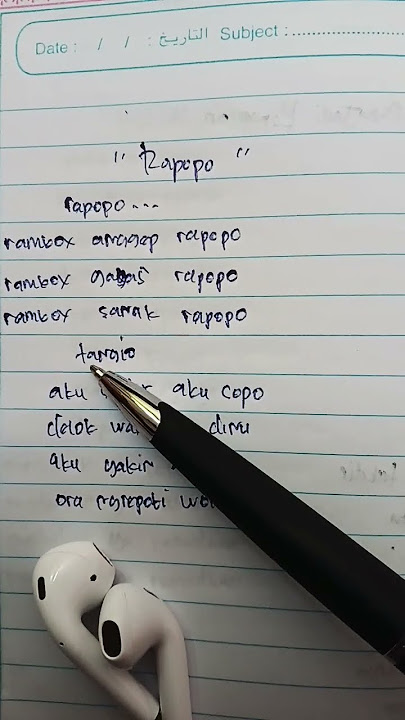 Date : / / : التاريخ Subject :
" Rapopo "
rapopo...
rambox anggep rapopo
rambox gagas rapopo
rambox sanak rapopo
tangio
aku aku copo
delok
aku yakin
ora ngrepoti